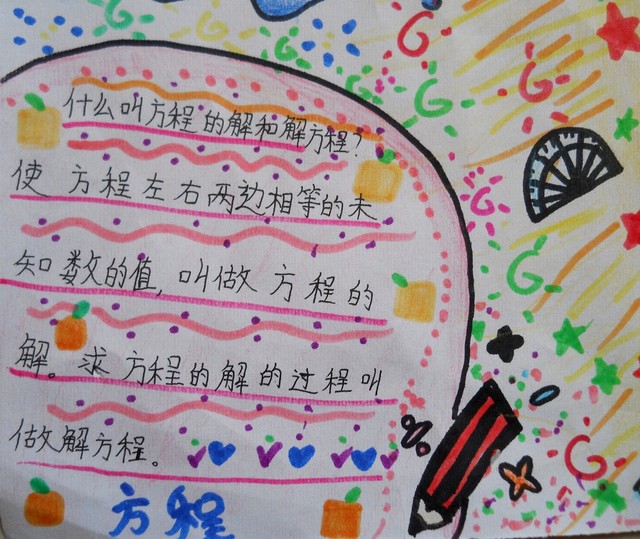 什么叫方程的解和解方程?
使方程左右两边相等的未
知数的值,叫做方程的
解。求方程的解的过程叫
做解方程。
方程